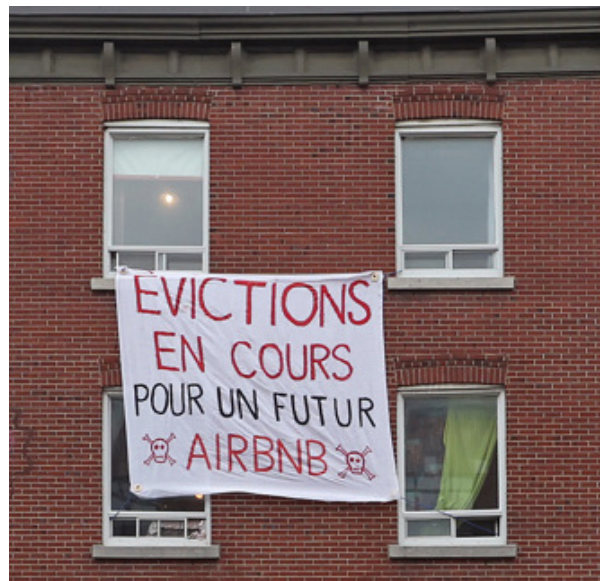 ÉVICTIONS
EN COURS
POUR UN FUTUR
AIRBNB